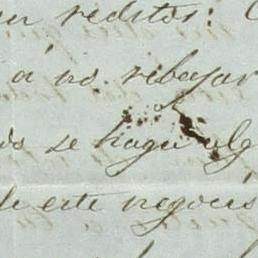 reditos:
á no rebajar
se haga alg
de este negocio